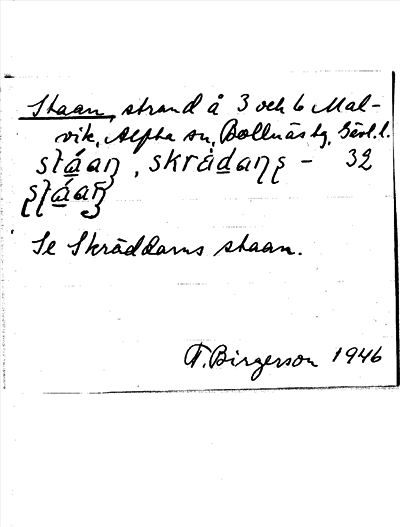 Staan, strand å 3 och 6 Mal-
vik, Alfta sn, Bollnäs tg, Gävl. l.
ståan, skrädans – 32
ståan
Se Skräddarns staan.
T. Birgerson 1946